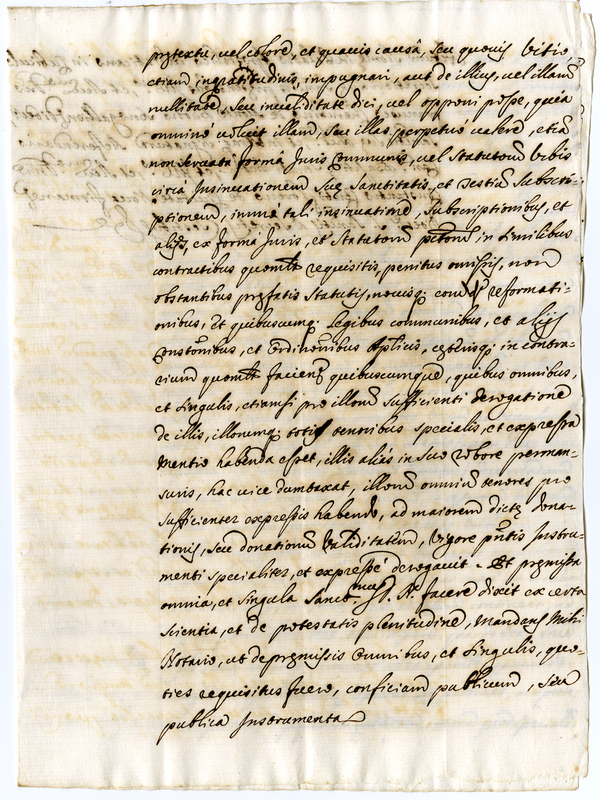 prętextu, vel colore, et quavis causâ, seu quovis Vitio
etiam ingratitudinis, impugnari, aut de illius, vel illarũ
nullitate, seu invaliditate dici, vel opponi posse, quia
omninò voluit illam, seu illas, perpetuò valere, etiã
non servata formâ Juris Communis, vel Statutorũ Urbis
circa Insinuationem Suę Sanctitatis, et Testium Subscri-
ptionem, immò tali insinuatione, Subscriptionibus, et
alijs, ex formâ Juris, et Statutorũ in Similibus
contractibus quomlt requisitis, penitus omissis, non
obstantibus pręfatis Statutis, novisq; eorũ reformati-
onibus, et quibuscumq; Legibus communibus, et alijs
Constõnibus, et Ordinõnibus Aplicis, cęterisq; in contra-
rium quomlt facieñ quibuscumque, quibus omnibus,
et Singulis, etiamsi pro illorũ sufficienti derogatione
de illis, illorumq; totis tenoribus specialis, et expressa
mentio habenda esset, illis aliàs in suo robore perman-
suris, hac vice dumtaxat, illorũ omnium tenores pro
sufficienter expressis habendo, ad maiorem dictę dona-
tionis, seu donationũ validitatem, vigore pñtis Instru-
menti specialiter, et expressè derogavit. Et pręmissa
omnia, et singula Sanct.mus D. N. facere dixit ex certa
scientia, et de potestatis plenitudine, Mandans Mihi
Notario, ut de pręmissis omnibus, et Singulis, quo-
ties requisitus fuero, conficiam publicum, seu
publica Instrumenta